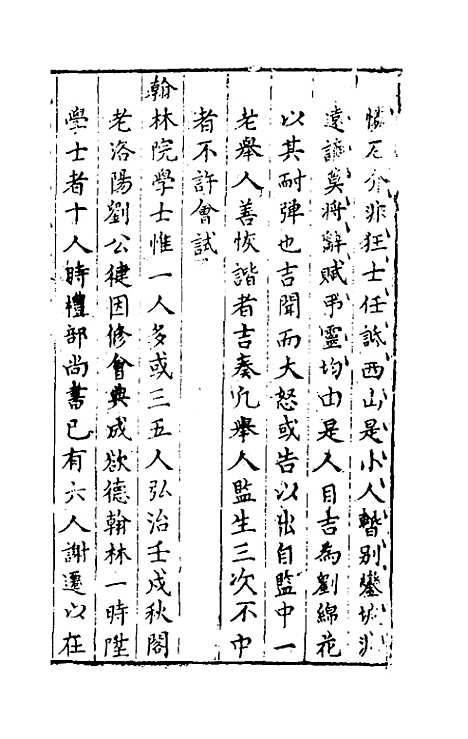 憐石介非狂士任詆西山是小人暫别鑾坡非
遠謫莫將辭賦弔靈均由是人目吉為劉綿花
以其耐彈也吉聞而大怒或告以出自監中一
老舉人善恢諧者吉奏凡舉人監生三次不中
者不許會試
翰林院學士惟一人多或三五人弘治壬戌秋閣
老洛陽劉公健因修會典成欲德翰林一時陞
學士者十人時禮部尚書已有六人謝遷以在